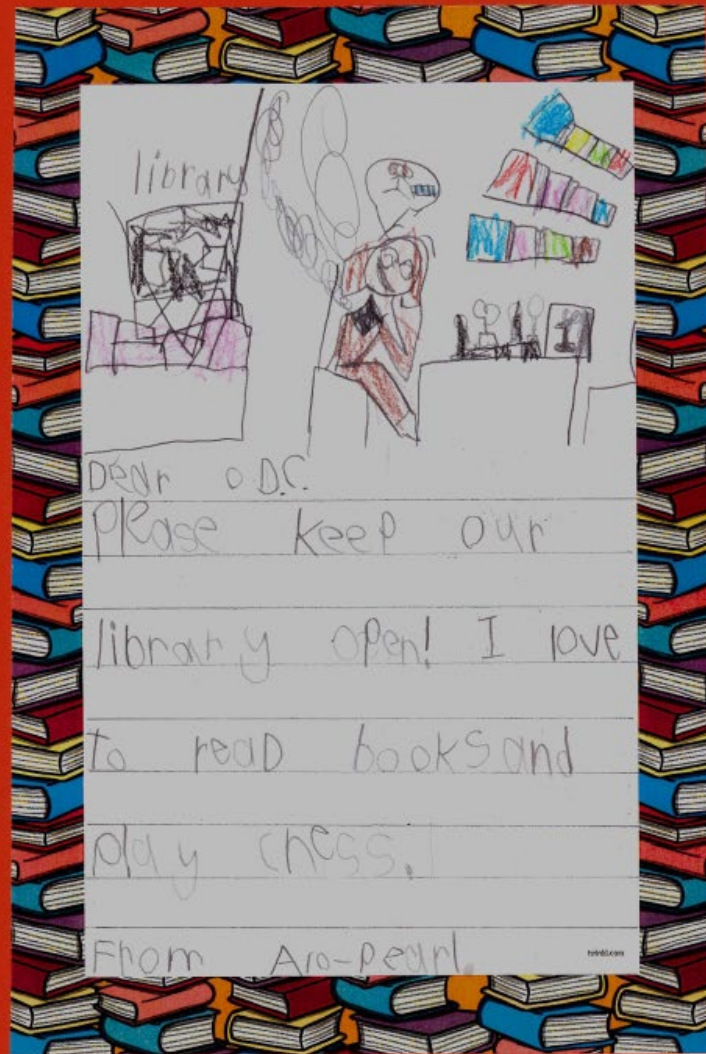 library
Dear O.D.C.
Please keep our
library open! I love
to read books and
play chess.
From Aro-Pearl
twinkl.com